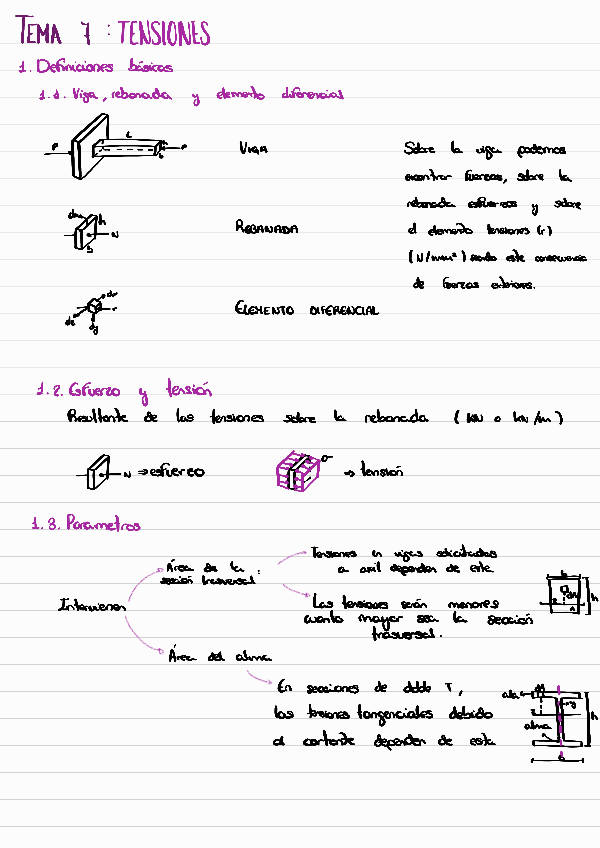 TEMA 7 : TENSIONES
1. Definiciones básicas
1.1. Viga, rebanada y elemento diferencial
P
L
h
b
P
VIGA
Sobre la viga podemos
encontrar fuerzas, sobre la
rebanada esfuerzos y sobre
el elemento tensiones (σ)
(N/mm²) siendo este consecuencia
de fuerzas exteriores.
dx
h
N
b
REBANADA
dx
dz
dy
ELEMENTO DIFERENCIAL
1.2. Esfuerzo y tensión
Resultante de las tensiones sobre la rebanada (kN o kN/m)
N ⇒ esfuerzo
σ
⇒ tensión
1.3. Parametros
Intervienen
Área de la :
sección trasversal
Tensiones en vigas solicitadas
a axil dependen de este
Las tensiones serán menores
cuanto mayor sea la sección
trasversal.
b
dA
z
h
Área del alma
En secciones de doble T,
las tensiones tangenciales debido
al cortante dependen de esta
ala
z
y
h
alma
b